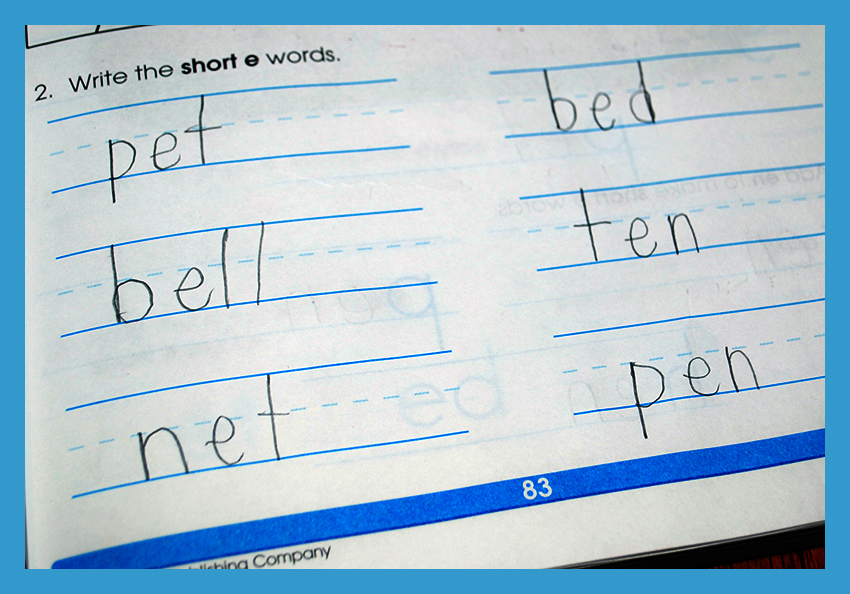 2. Write the short e words.
pet bed
bell ten
net pen
83
Company